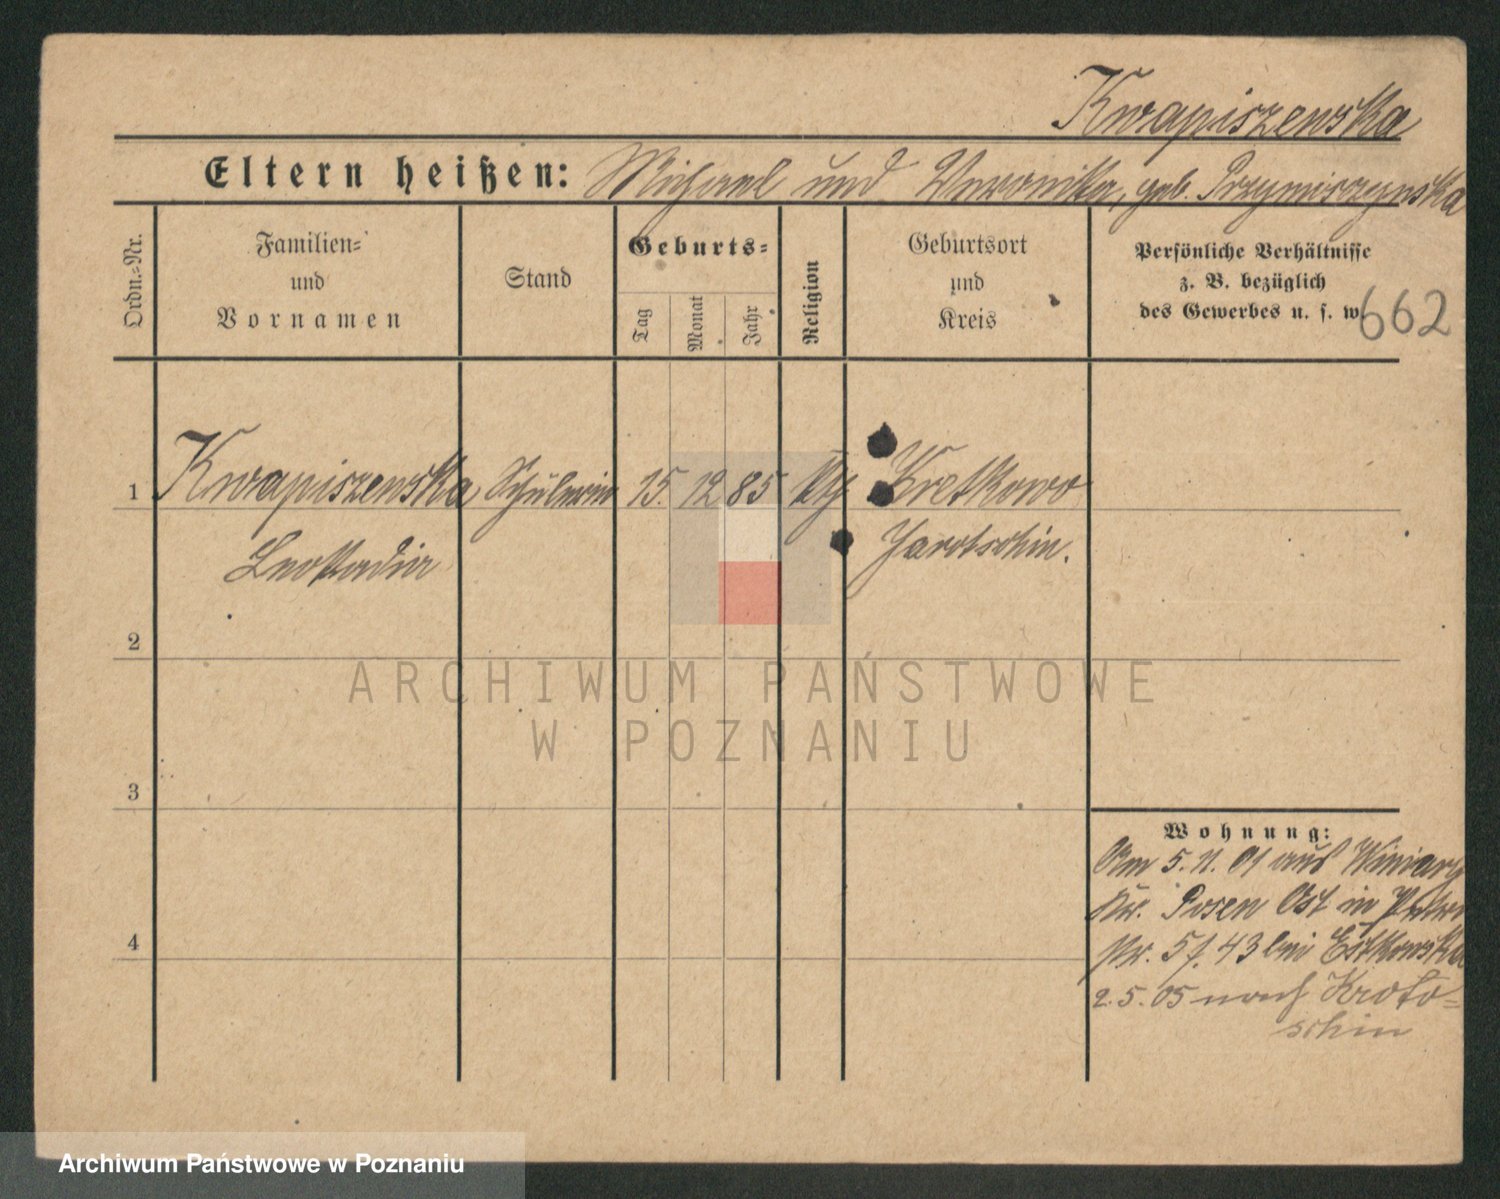 Kwapiszewska
Eltern heißen: Michael und Veronika, geb. Przymiszynska
Ordn.=Nr.
Familien=
und
Vornamen
Stand
Geburts=
Tag
Monat
Jahr
Religion
Geburtsort
und
Kreis
Persönliche Verhältnisse
z. B. bezüglich
des Gewerbes u. s. w.
662
1 Kwapiszewska Schülerin 15. 12 85 kth Kretkowo
Leokadia Jarotschin.
2
3
4
Wohnung:
Am 5. 11. 01 aus Winiary
Kr. Posen Ost in Petri
pr. 43 bei Estkowska
2. 5. 05 nach Kroto=
schin
ARCHIWUM PAŃSTWOWE
W POZNANIU
Archiwum Państwowe w Poznaniu